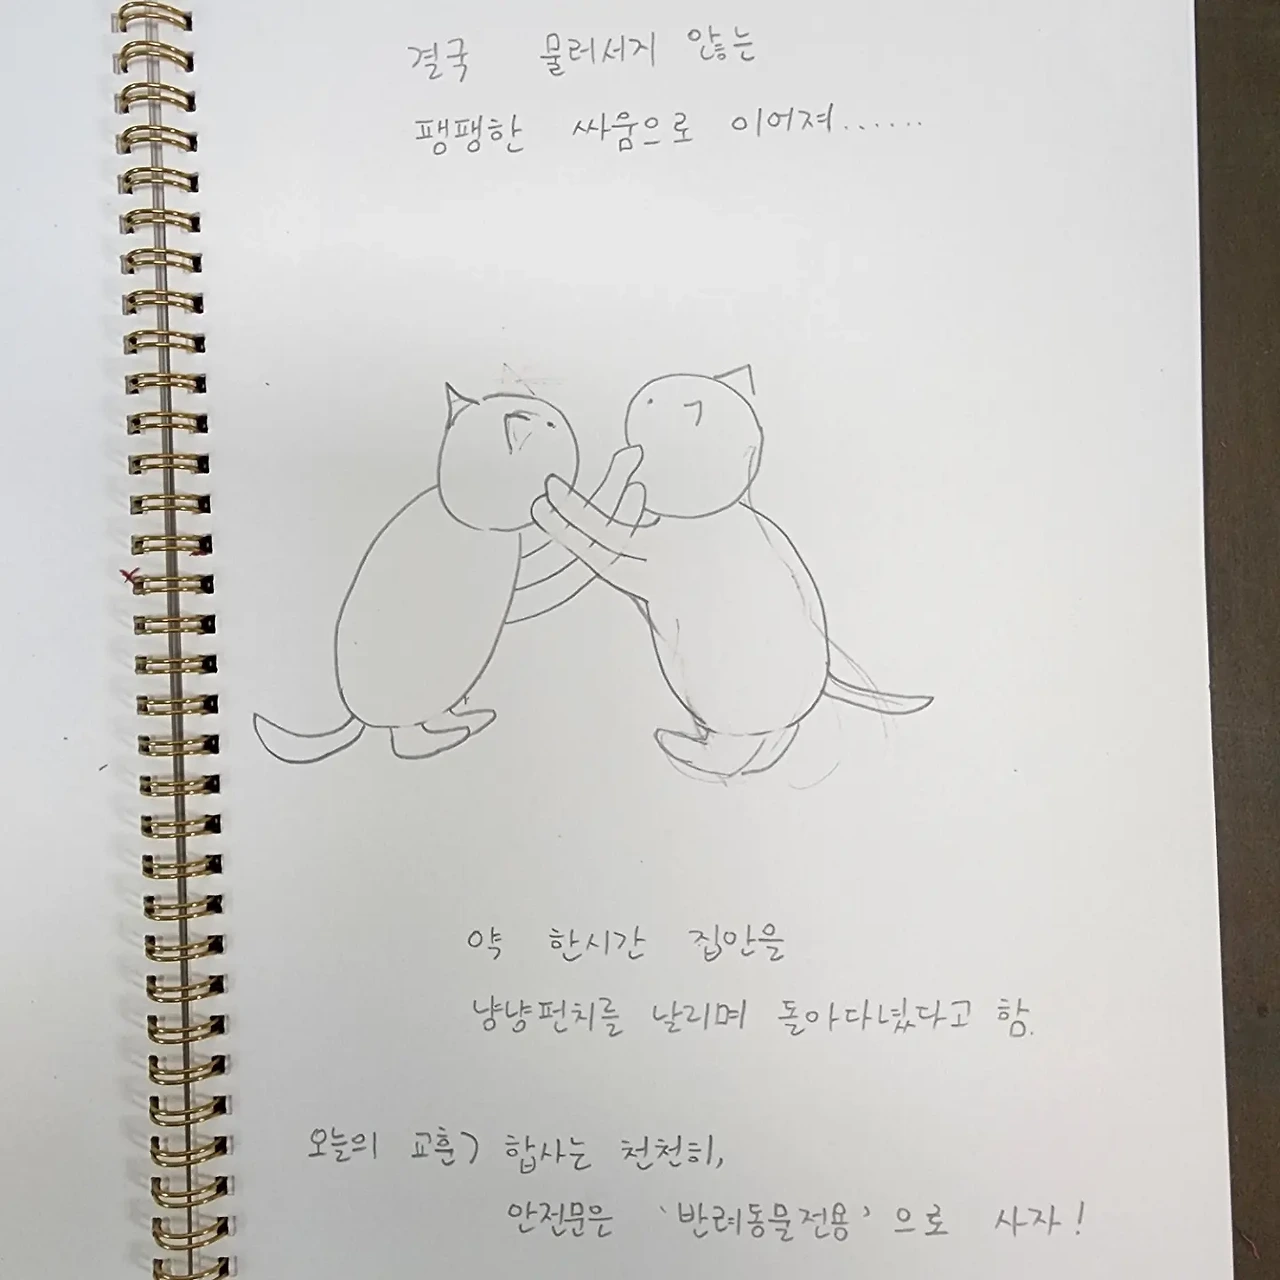 결국 물러서지 않는
팽팽한 싸움으로 이어져......
약 한시간 집안을
냥냥펀치를 날리며 돌아다녔다고 함.
오늘의 교훈> 합사는 천천히,
안전문은 '반려동물전용'으로 사자!